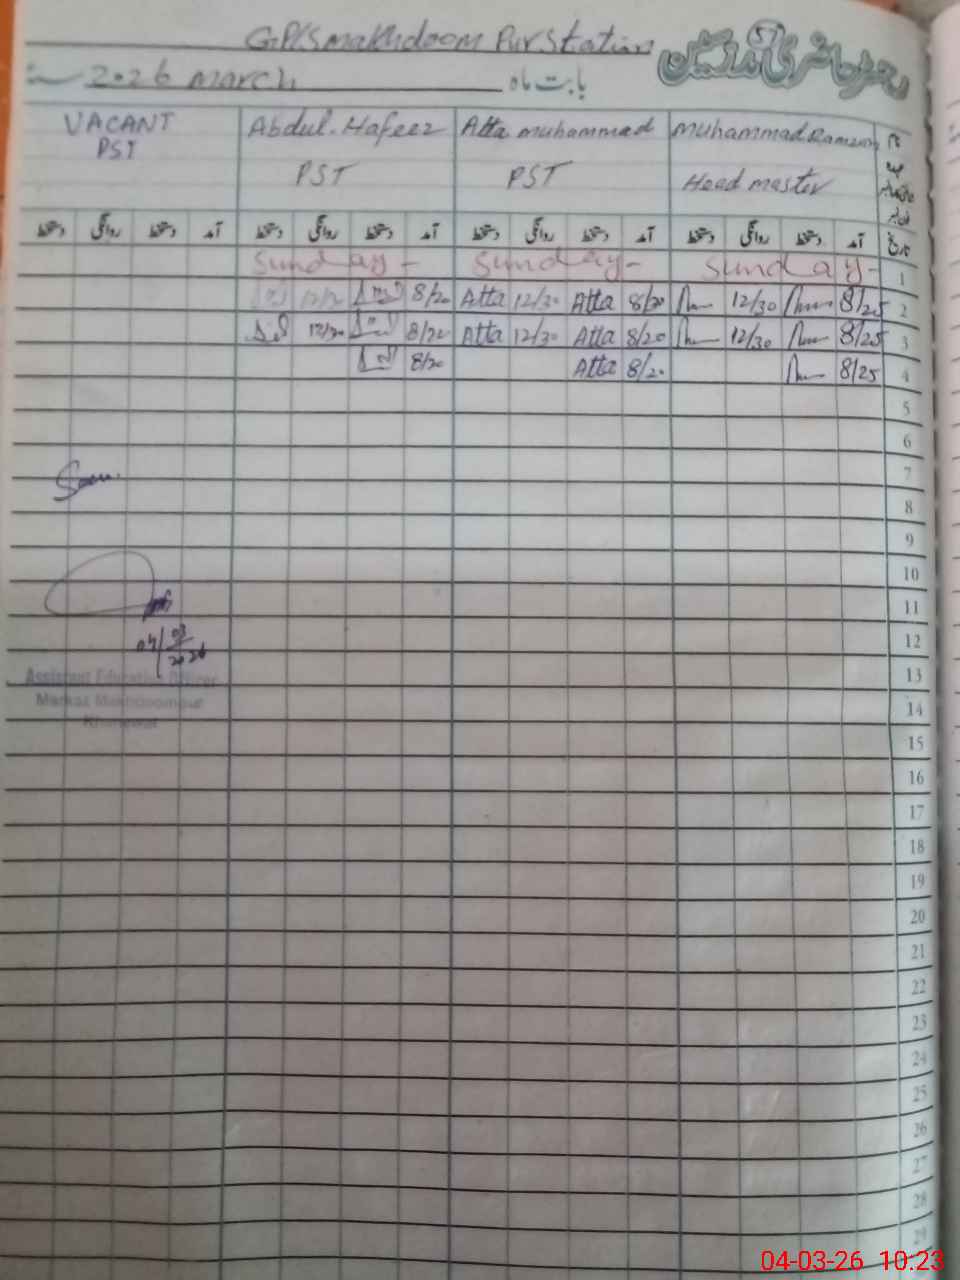 GP/S makhdoom Pur Station
رجسٹر حاضری مدرسین
57
2026 march بابت ماہ
VACANT Abdul. Hafeez Atta muhammad Muhammad Ramzan نام
PST PST PST Head master عہدہ
دستخط روانگی دستخط آمد دستخط روانگی دستخط آمد دستخط روانگی دستخط آمد دستخط روانگی دستخط آمد تاریخ
Sunday - Sunday - Sunday - 1
8/20 Atta 12/30 Atta 8/20 12/30 8/25 2
12/30 8/20 Atta 12/30 Atta 8/20 12/30 8/25 3
8/20 Atta 8/20 8/25 4
5
6
7
8
9
10
11
12
04/03/2026
13
Assistant Education Officer
Markaz Makhdoompur
14
Khanewal
15
16
17
18
19
20
21
22
23
24
25
26
27
28
29
04-03-26 10:23